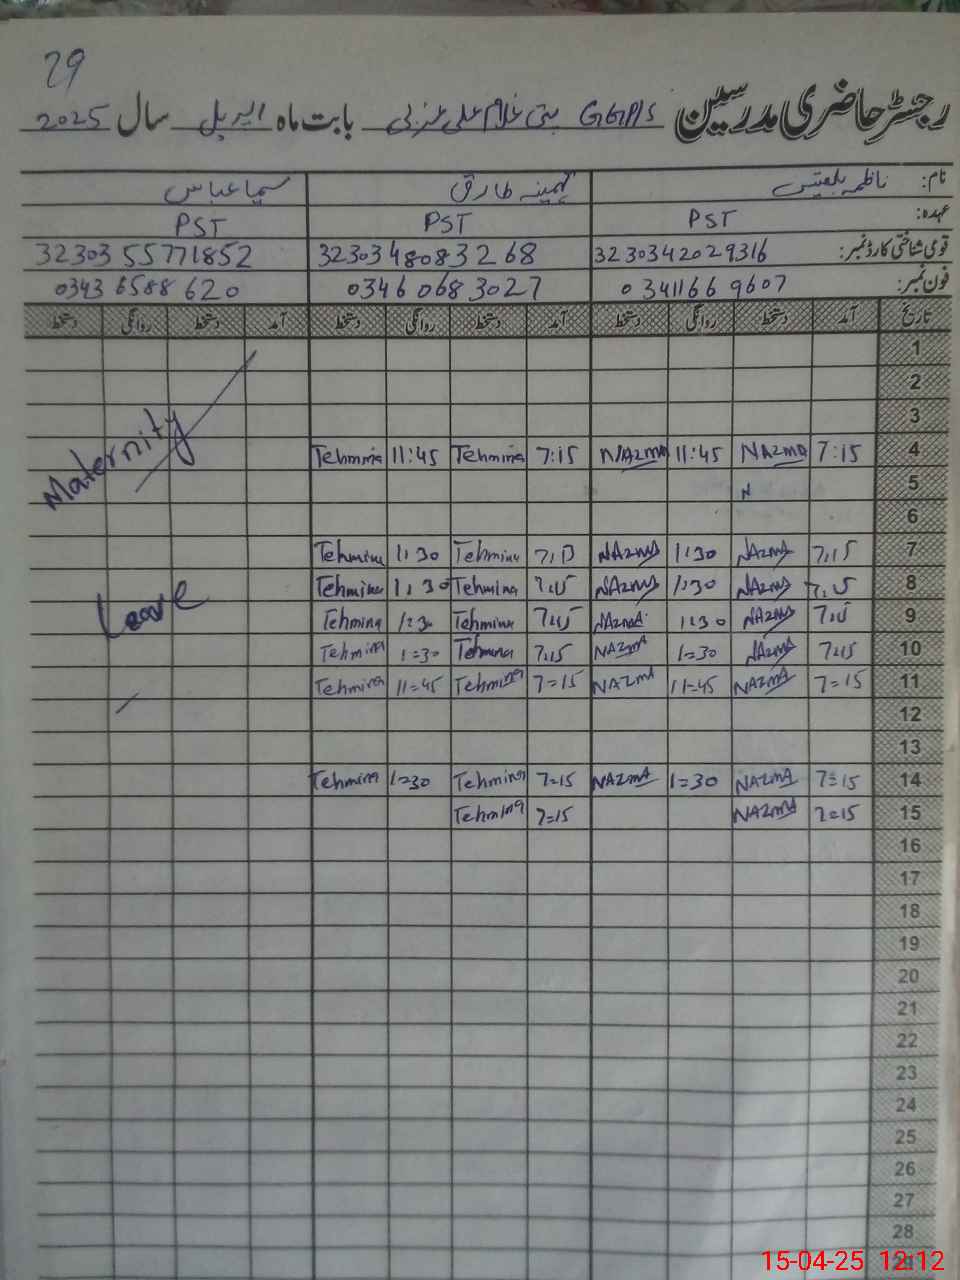 29
رجسٹر حاضری مدرسین GGP/S بستی غلام علی غربی بابت ماہ اپریل سال 2025
نام: ناظمہ بلقیس تہمینہ طارق سیما عباس
عہدہ: PST PST PST
قومی شناختی کارڈ نمبر: 3230342029316 3230348083268 3230355771852
فون نمبر: 03411669607 03460683027 03436588620
تاریخ آمد دستخط روانگی دستخط آمد دستخط روانگی دستخط آمد دستخط روانگی دستخط
1
2
3
4 7:15 NAZMA 11:45 NAZMA 7:15 Tehmina 11:45 Tehmina
Maternity
5 N
6
7 7:15 NAZMA 1:30 NAZMA 7:15 Tehmina 1:30 Tehmina
8 7:15 NAZMA 1:30 NAZMA 7:15 Tehmina 1:30 Tehmina
Leave
9 7:15 NAZMA 1:30 NAZMA 7:15 Tehmina 1:30 Tehmina
10 7:15 NAZMA 1=30 NAZMA 7:15 Tehmina 1=30 Tehmina
11 7=15 NAZMA 11=45 NAZMA 7=15 Tehmina 11=45 Tehmina
12
13
14 7=15 NAZMA 1=30 NAZMA 7=15 Tehmina 1=30 Tehmina
15 7=15 NAZMA 7=15 Tehmina
16
17
18
19
20
21
22
23
24
25
26
27
28
15-04-25 12:12